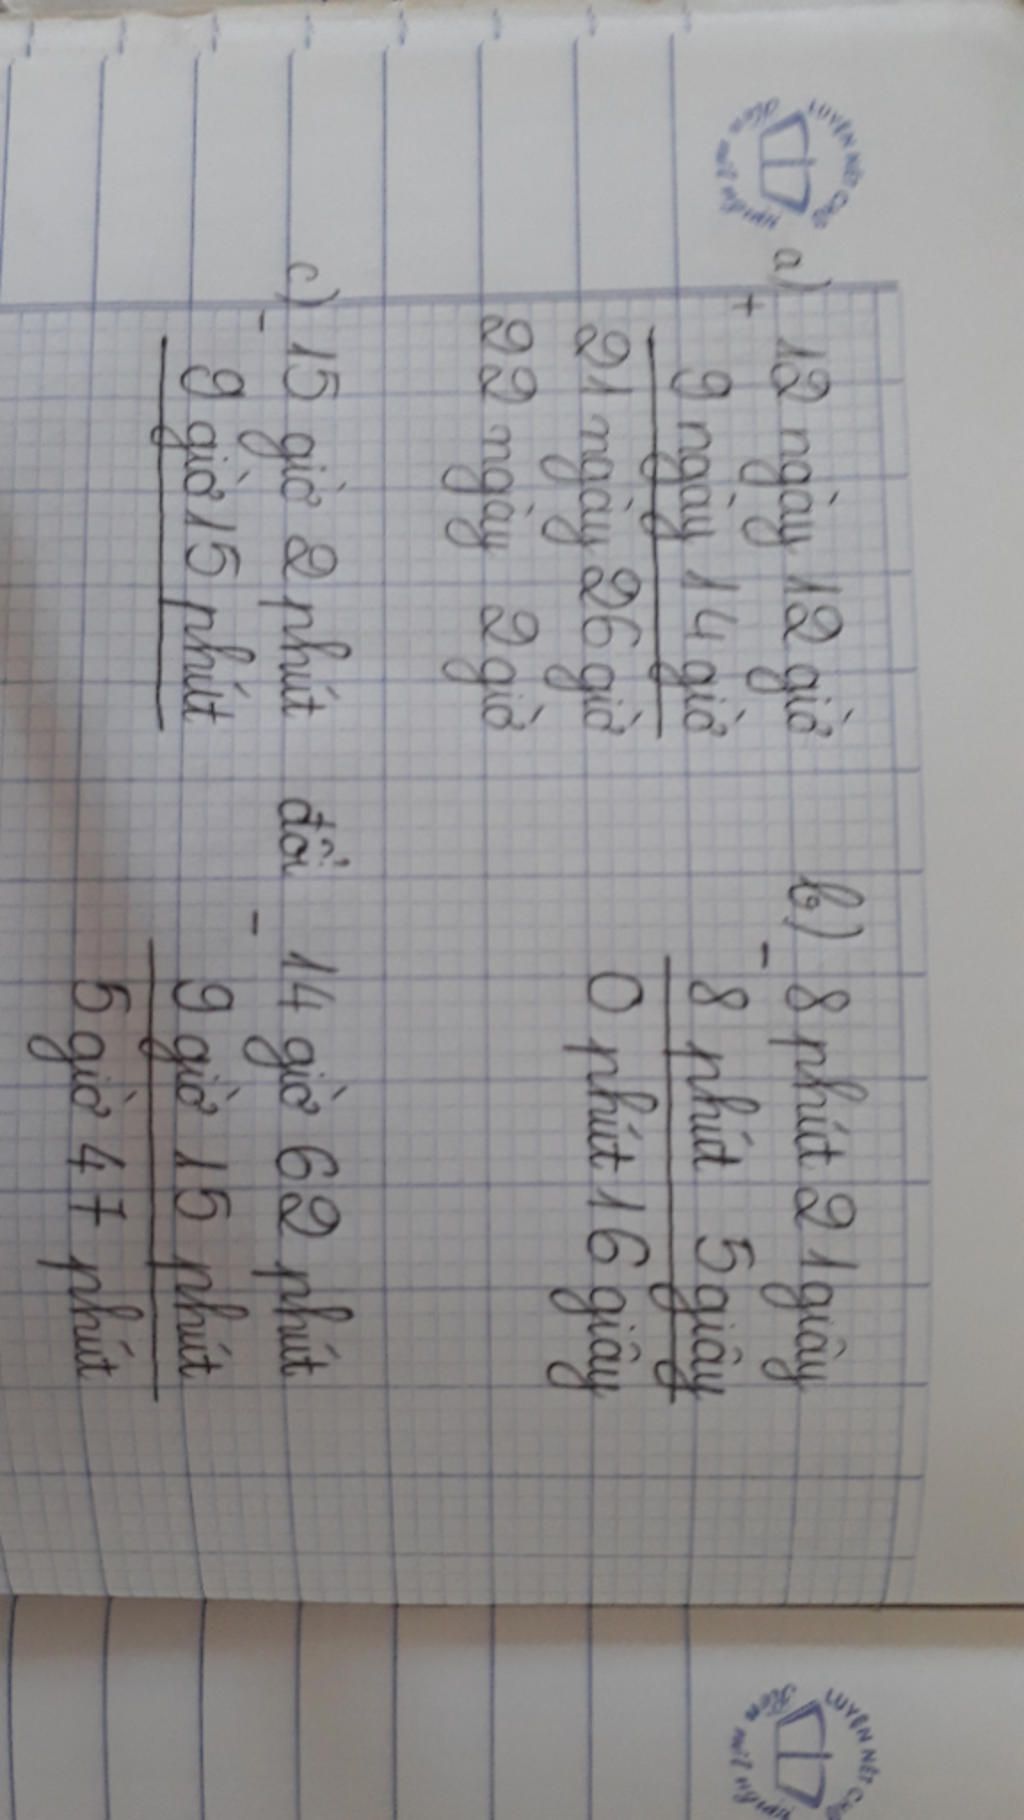 LUYỆN NÉT CHỮ
Rèn nết người
a) 12 ngày 12 giờ
+
9 ngày 14 giờ
21 ngày 26 giờ
22 ngày 2 giờ
b) 8 phút 21 giây
-
8 phút 5 giây
0 phút 16 giây
c) 15 giờ 2 phút đổi 14 giờ 62 phút
- -
9 giờ 15 phút 9 giờ 15 phút
5 giờ 47 phút
LUYỆN NÉT CHỮ
Rèn nết người